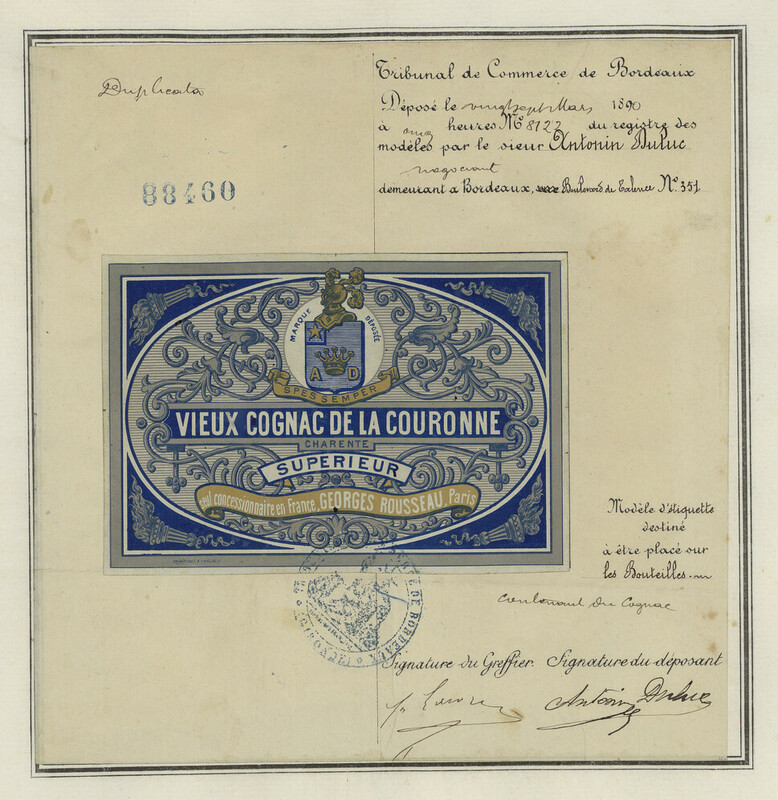 Duplicata
88460
Tribunal de Commerce de Bordeaux
Déposé le vingt sept Mars 1890
à onze heures Nº 8122 du registre des
modèles par le sieur Antonin Duluc
negociant
demeurant a Bordeaux, Boulevard de Talence Nº 351
MARQUE DÉPOSÉE
A D
SPES SEMPER
VIEUX COGNAC DE LA COURONNE
CHARENTE
SUPERIEUR
Seul concessionnaire en France, GEORGES ROUSSEAU, Paris
Modèle d'étiquette
destiné
à être placé sur
les Bouteilles
contenant du Cognac
DE BORDEAUX
Signature du Greffier. Signature du déposant
Antonin Duluc